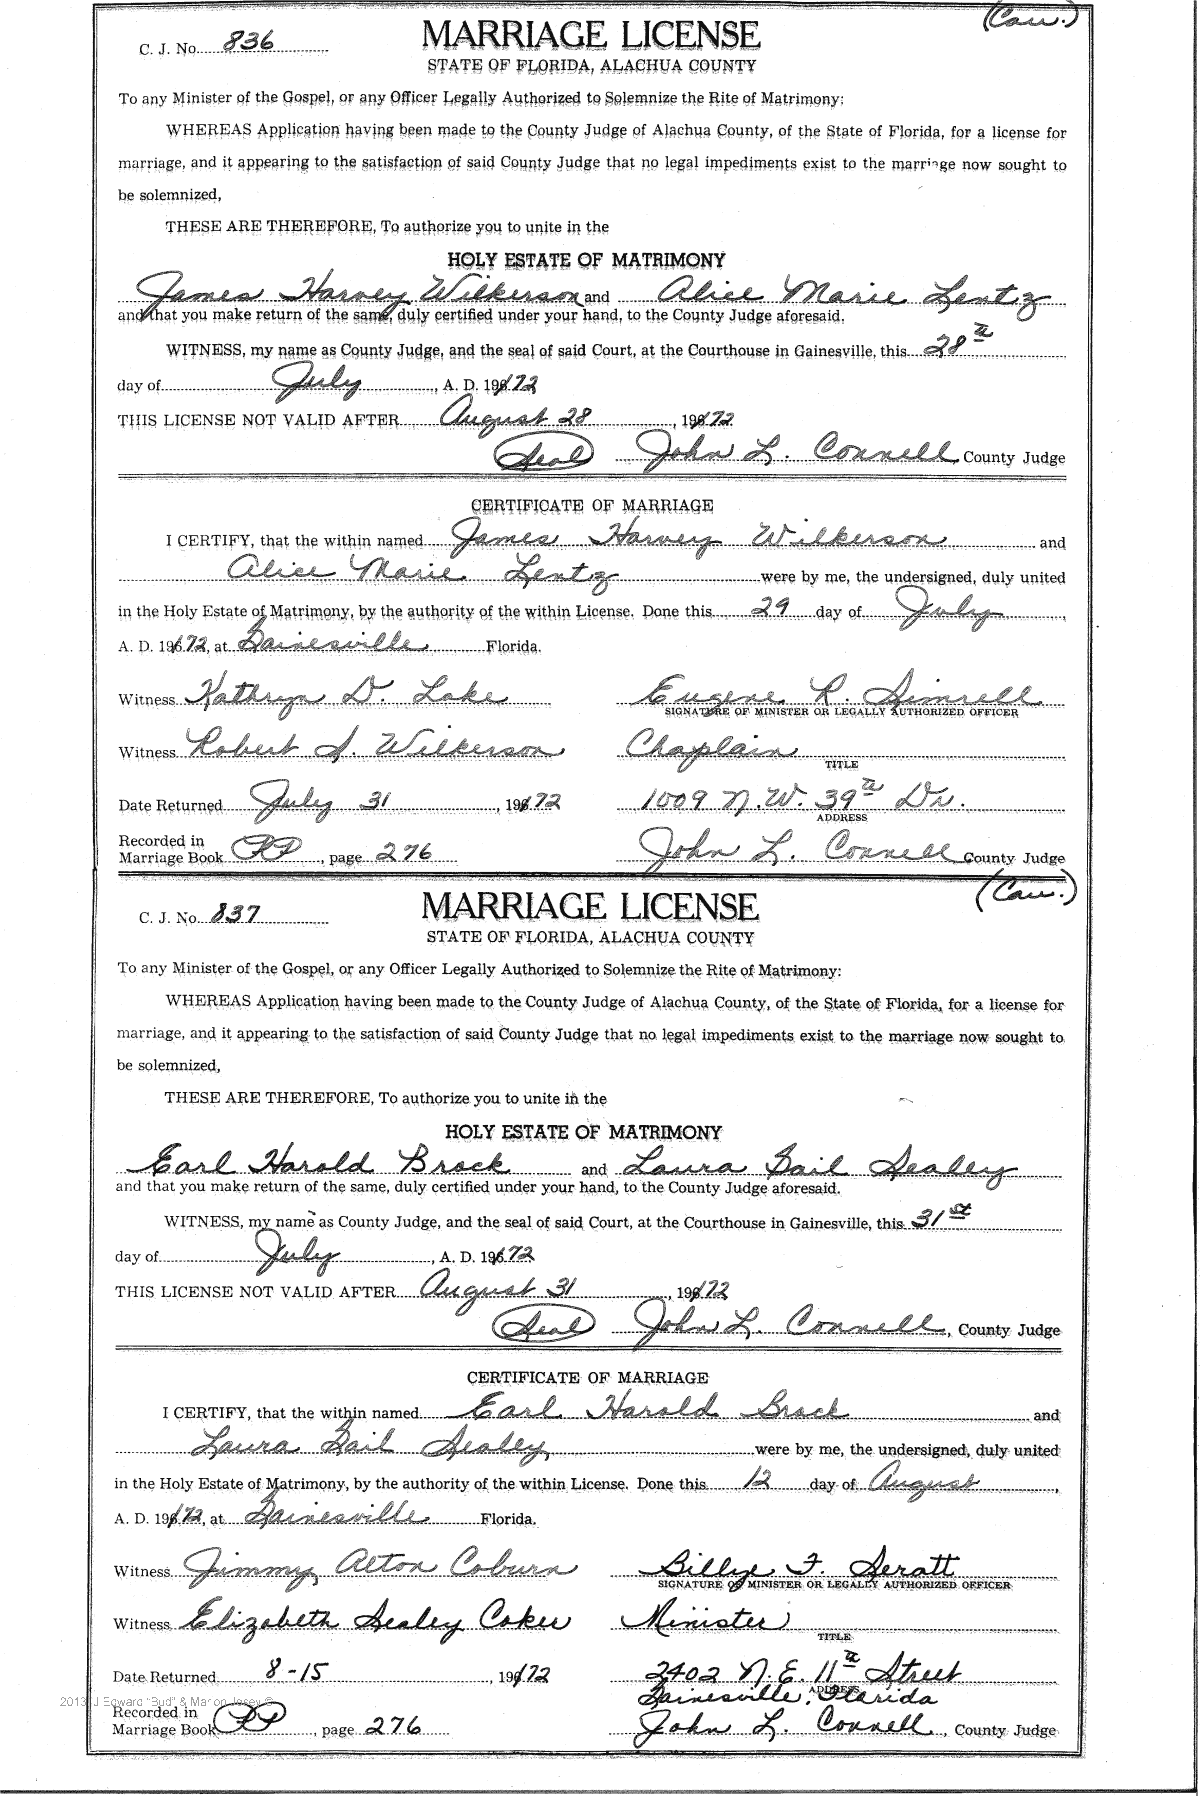 (Cau.)
C. J. No. 836
MARRIAGE LICENSE
STATE OF FLORIDA, ALACHUA COUNTY
To any Minister of the Gospel, or any Officer Legally Authorized to Solemnize the Rite of Matrimony:
WHEREAS Application having been made to the County Judge of Alachua County, of the State of Florida, for a license for
marriage, and it appearing to the satisfaction of said County Judge that no legal impediments exist to the marriage now sought to
be solemnized,
THESE ARE THEREFORE, To authorize you to unite in the
HOLY ESTATE OF MATRIMONY
James Harvey Wilkerson and Alice Marie Lentz
and that you make return of the same, duly certified under your hand, to the County Judge aforesaid.
WITNESS, my name as County Judge, and the seal of said Court, at the Courthouse in Gainesville, this 28th
day of July, A. D. 1972
THIS LICENSE NOT VALID AFTER August 28, 1972
(Seal) John L. Connell, County Judge
CERTIFICATE OF MARRIAGE
I CERTIFY, that the within named James Harvey Wilkerson and
Alice Marie Lentz were by me, the undersigned, duly united
in the Holy Estate of Matrimony, by the authority of the within License. Done this 29 day of July,
A. D. 1972, at Gainesville Florida.
Witness Kathryn D. Lake Eugene R.
SIGNATURE OF MINISTER OR LEGALLY AUTHORIZED OFFICER
Witness Robert S. Wilkerson Chaplain
TITLE
Date Returned July 31, 1972 1009 N.W. 39th Dr.
ADDRESS
Recorded in
Marriage Book PP, page 276 John L. Connell County Judge
(Cau.)
C. J. No. 837
MARRIAGE LICENSE
STATE OF FLORIDA, ALACHUA COUNTY
To any Minister of the Gospel, or any Officer Legally Authorized to Solemnize the Rite of Matrimony:
WHEREAS Application having been made to the County Judge of Alachua County, of the State of Florida, for a license for
marriage, and it appearing to the satisfaction of said County Judge that no legal impediments exist to the marriage now sought to
be solemnized,
THESE ARE THEREFORE, To authorize you to unite in the
HOLY ESTATE OF MATRIMONY
Earl Harold Brock and Laura Gail Sealey
and that you make return of the same, duly certified under your hand, to the County Judge aforesaid.
WITNESS, my name as County Judge, and the seal of said Court, at the Courthouse in Gainesville, this 31st
day of July, A. D. 1972
THIS LICENSE NOT VALID AFTER August 31, 1972
(Seal) John L. Connell, County Judge
CERTIFICATE OF MARRIAGE
I CERTIFY, that the within named Earl Harold Brock and
Laura Gail Sealey were by me, the undersigned, duly united
in the Holy Estate of Matrimony, by the authority of the within License. Done this 12 day of August,
A. D. 1972, at Gainesville Florida.
Witness Jimmy Alton Coburn Billye F. Seratt
SIGNATURE OF MINISTER OR LEGALLY AUTHORIZED OFFICER
Witness Elizabeth Sealey Coker Minister
TITLE
Date Returned 8-15, 1972 2402 N. E. 11th Street
ADDRESS
Gainesville, Florida
2013 J Edward "Bud" & Marion
Recorded in
Marriage Book PP, page 276 John L. Connell, County Judge